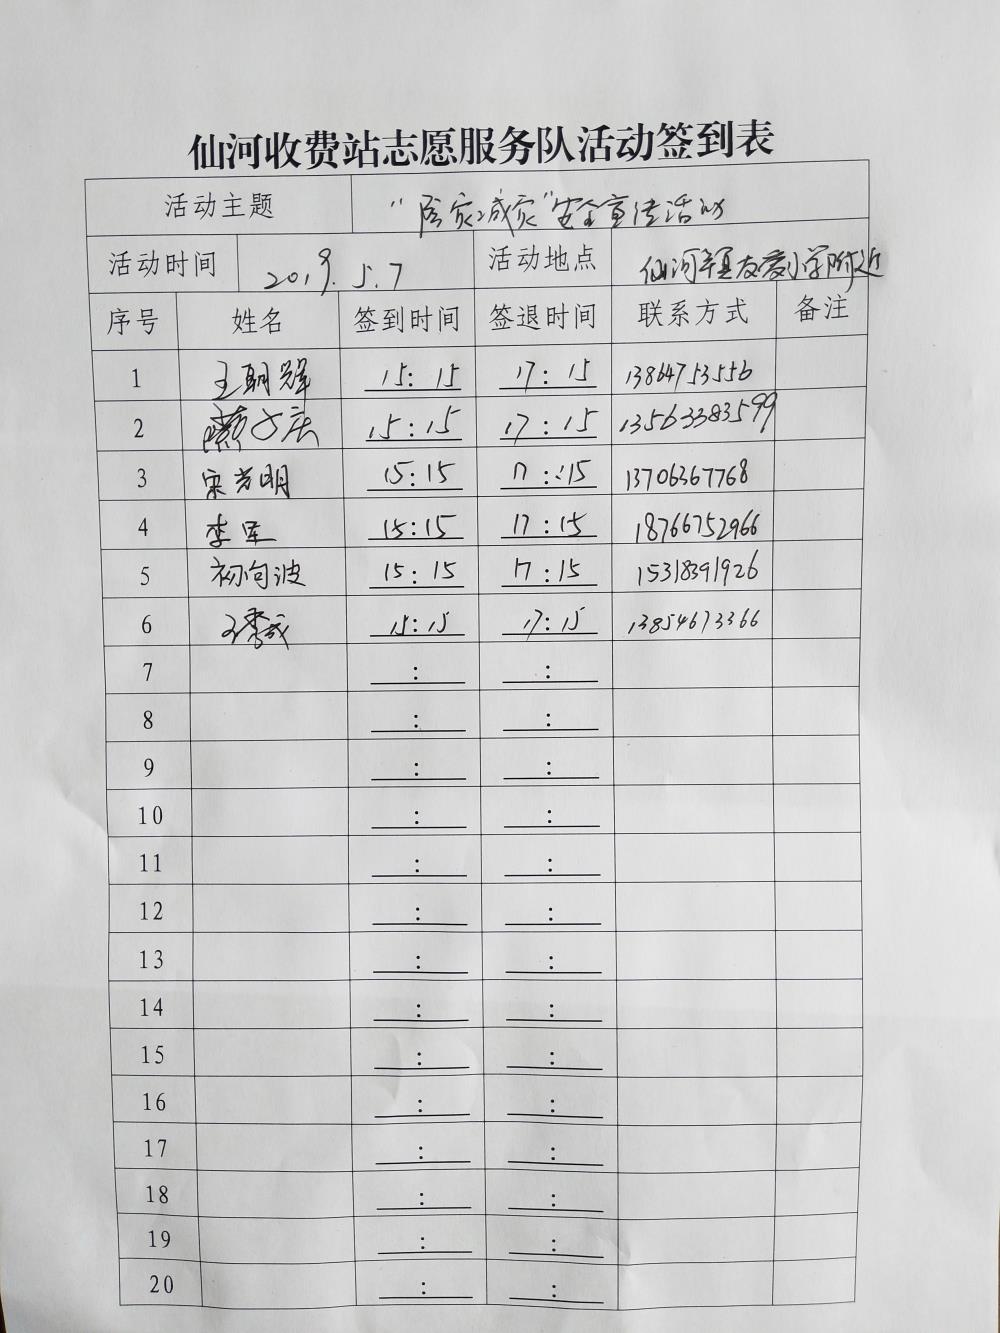 仙河收费站志愿服务队活动签到表
活动主题 "防灾减灾"安全宣传活动
活动时间 2019.5.7 活动地点 仙河镇友爱小学附近
序号 姓名 签到时间 签退时间 联系方式 备注
1 王朝辉 15:15 17:15 13864753556
2 15:15 17:15 13563383599
3 宋光明 15:15 17:15 13706367768
4 李军 15:15 17:15 18766752966
5 初向波 15:15 17:15 15318391926
6 15:15 17:15 13854673366
7 : :
8 : :
9 : :
10 : :
11 : :
12 : :
13 : :
14 : :
15 : :
16 : :
17 : :
18 : :
19 : :
20 : :